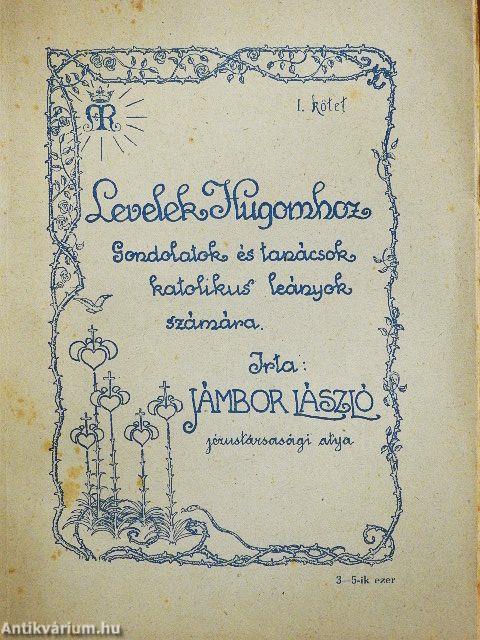 I. kötet
Levelek Hugomhoz
Gondolatok és tanácsok
katolikus leányok
számára.
Irta:
JÁMBOR LÁSZLÓ
jézustársasági atya
3—5-ik ezer
Antikvárium.hu